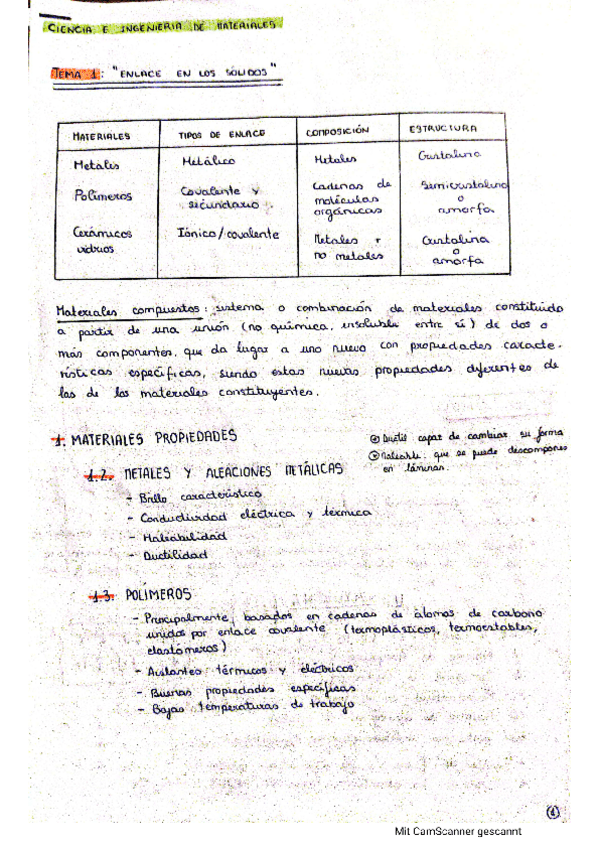 CIENCIA E INGENIERIA DE MATERIALES
TEMA 1: "ENLACE EN LOS SÓLIDOS"
MATERIALES TIPOS DE ENLACE COMPOSICIÓN ESTRUCTURA
Metales Metálico Metales Cristalina
Polímeros Covalente y secundario Cadenas de moléculas orgánicas Semicristalina o amorfa
Cerámicos vidrios Iónico/covalente Metales + no metales Cristalina o amorfa
Materiales compuestos: sistema o combinación de materiales constituido
a partir de una unión (no química, insoluble entre sí) de dos o
más componentes, que da lugar a uno nuevo con propiedades caracte-
rísticas específicas, siendo estas nuevas propiedades diferentes de
las de los materiales constituyentes.
1. MATERIALES PROPIEDADES
Ductil: capaz de cambiar su forma
Maleable: que se puede descompones
en láminas.
1.2. METALES Y ALEACIONES METÁLICAS
- Brillo característico
- Conductividad eléctrica y térmica
- Maleabilidad
- Ductilidad
1.3. POLÍMEROS
- Principalmente, basados en cadenas de átomos de carbono
unidos por enlace covalente (termoplásticos, termoestables,
elastómeros)
- Aislantes térmicos y eléctricos
- Buenas propiedades específicas
- Bajas temperaturas de trabajo
1
Mit CamScanner gescannt